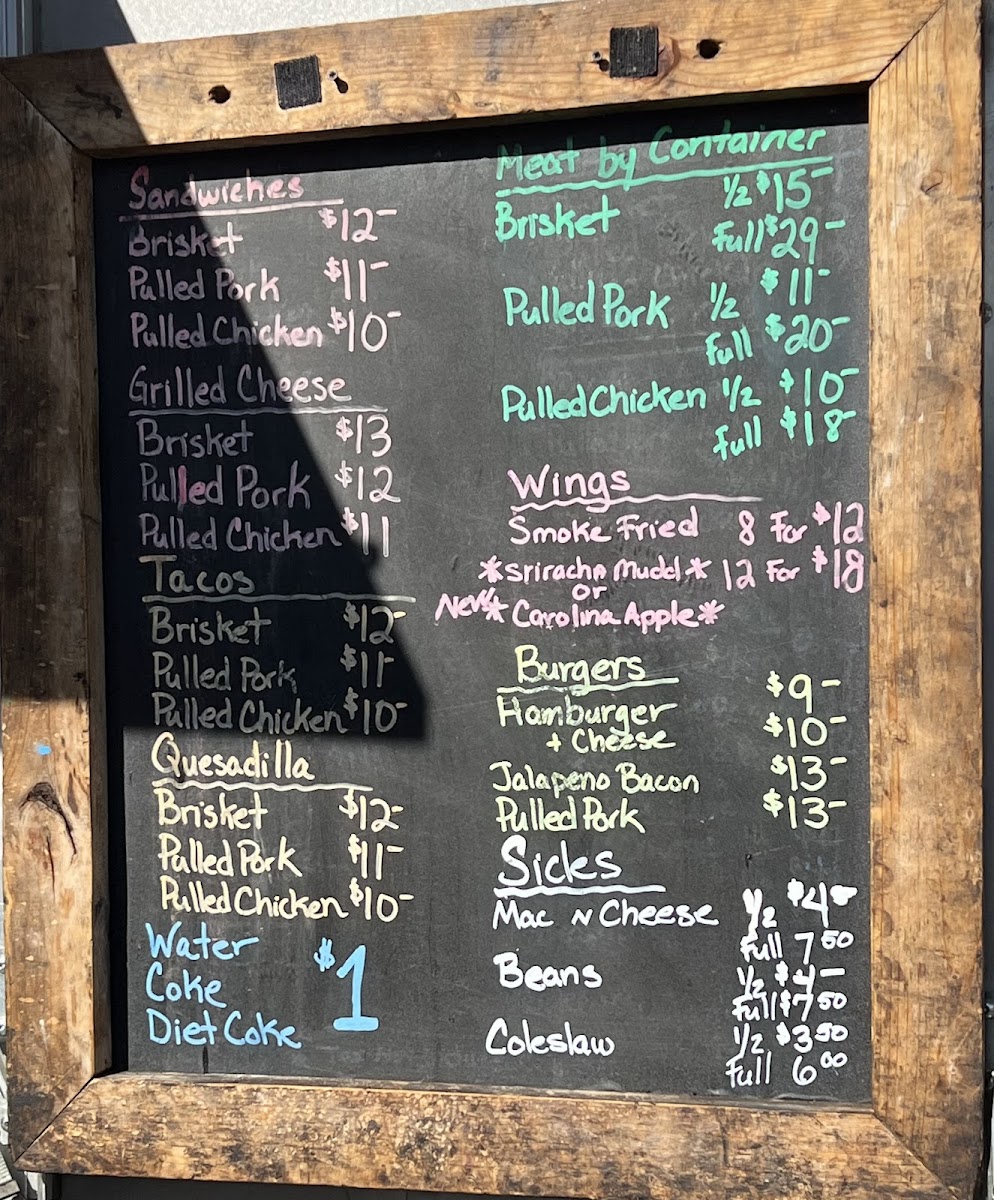 Sandwiches
Brisket $12-
Pulled Pork $11-
Pulled Chicken $10-
Grilled Cheese
Brisket $13
Pulled Pork $12
Pulled Chicken $11
Tacos
Brisket $12-
Pulled Pork $11-
Pulled Chicken $10-
Quesadilla
Brisket $12-
Pulled Pork $11-
Pulled Chicken $10-
Water
Coke $1
Diet Coke
Meat by Container
Brisket 1/2 $15-
Full $29-
Pulled Pork 1/2 $11-
Full $20-
Pulled Chicken 1/2 $10-
Full $18-
Wings
Smoke Fried 8 For $12
*Sriracha Mudd* 12 For $18
or
New!* Carolina Apple*
Burgers
Hamburger $9-
+ Cheese $10-
Jalapeno Bacon $13-
Pulled Pork $13-
Sides
Mac N Cheese 1/2 $4-
Full 7 50
Beans 1/2 $4-
Full $7 50
Coleslaw 1/2 $3 50
Full 6 00